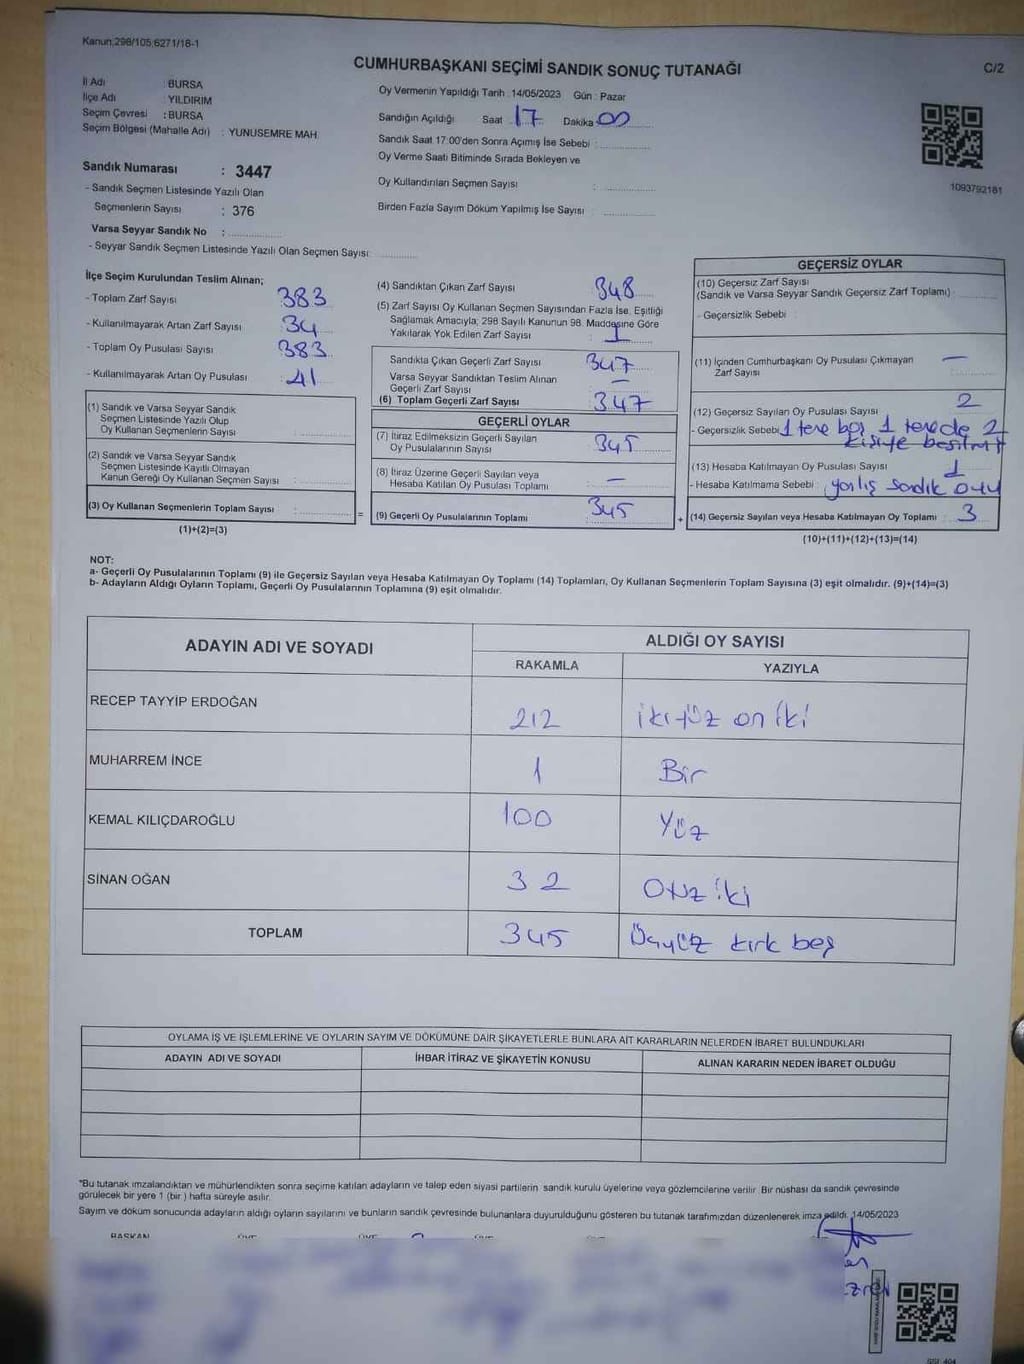 Kanun:298/105,6271/18-1
CUMHURBAŞKANI SEÇİMİ SANDIK SONUÇ TUTANAĞI
C/2
İl Adı : BURSA
İlçe Adı : YILDIRIM
Seçim Çevresi : BURSA
Seçim Bölgesi (Mahalle Adı) : YUNUSEMRE MAH.
Sandık Numarası : 3447
- Sandık Seçmen Listesinde Yazılı Olan
Seçmenlerin Sayısı : 376
Varsa Seyyar Sandık No :
- Seyyar Sandık Seçmen Listesinde Yazılı Olan Seçmen Sayısı:
Oy Vermenin Yapıldığı Tarih : 14/05/2023 Gün : Pazar
Sandığın Açıldığı Saat 17 Dakika 00
Sandık Saat 17:00'den Sonra Açımış İse Sebebi :
Oy Verme Saati Bitiminde Sırada Bekleyen ve
Oy Kullandırılan Seçmen Sayısı :
Birden Fazla Sayım Döküm Yapılmış İse Sayısı :
1093792181
İlçe Seçim Kurulundan Teslim Alınan;
- Toplam Zarf Sayısı : 383
- Kullanılmayarak Artan Zarf Sayısı : 34
- Toplam Oy Pusulası Sayısı : 383
- Kullanılmayarak Artan Oy Pusulası : 41
(1) Sandık ve Varsa Seyyar Sandık
Seçmen Listesinde Yazılı Olup
Oy Kullanan Seçmenlerin Sayısı :
(2) Sandık ve Varsa Seyyar Sandık
Seçmen Listesinde Kayıtlı Olmayan
Kanun Gereği Oy Kullanan Seçmen Sayısı :
(3) Oy Kullanan Seçmenlerin Toplam Sayısı :
(1)+(2)=(3)
=
(4) Sandıktan Çıkan Zarf Sayısı : 348
(5) Zarf Sayısı Oy Kullanan Seçmen Sayısından Fazla İse, Eşitliği
Sağlamak Amacıyla; 298 Sayılı Kanunun 98. Maddesine Göre
Yakılarak Yok Edilen Zarf Sayısı : 1
Sandıkta Çıkan Geçerli Zarf Sayısı : 347
Varsa Seyyar Sandıktan Teslim Alınan
Geçerli Zarf Sayısı : —
(6) Toplam Geçerli Zarf Sayısı : 347
GEÇERLİ OYLAR
(7) İtiraz Edilmeksizin Geçerli Sayılan
Oy Pusulalarının Sayısı : 345
(8) İtiraz Üzerine Geçerli Sayılan veya
Hesaba Katılan Oy Pusulası Toplamı : —
(9) Geçerli Oy Pusulalarının Toplamı : 345
+
GEÇERSİZ OYLAR
(10) Geçersiz Zarf Sayısı
(Sandık ve Varsa Seyyar Sandık Geçersiz Zarf Toplamı) :
- Geçersizlik Sebebi :
(11) İçinden Cumhurbaşkanı Oy Pusulası Çıkmayan
Zarf Sayısı : —
(12) Geçersiz Sayılan Oy Pusulası Sayısı : 2
- Geçersizlik Sebebi : 1 tane boş 1 tanede 2
kişiye basılmış
(13) Hesaba Katılmayan Oy Pusulası Sayısı : 1
- Hesaba Katılmama Sebebi : yanlış sandık oyu
(14) Geçersiz Sayılan veya Hesaba Katılmayan Oy Toplamı : 3
(10)+(11)+(12)+(13)=(14)
NOT:
a- Geçerli Oy Pusulalarının Toplamı (9) ile Geçersiz Sayılan veya Hesaba Katılmayan Oy Toplamı (14) Toplamları, Oy Kullanan Seçmenlerin Toplam Sayısına (3) eşit olmalıdır. (9)+(14)=(3)
b- Adayların Aldığı Oyların Toplamı, Geçerli Oy Pusulalarının Toplamına (9) eşit olmalıdır.
ADAYIN ADI VE SOYADI
ALDIĞI OY SAYISI
RAKAMLA YAZIYLA
RECEP TAYYİP ERDOĞAN 212 ikiyüz on iki
MUHARREM İNCE 1 Bir
KEMAL KILIÇDAROĞLU 100 Yüz
SİNAN OĞAN 32 Otuz iki
TOPLAM 345 Üçyüz kırk beş
OYLAMA İŞ VE İŞLEMLERİNE VE OYLARIN SAYIM VE DÖKÜMÜNE DAİR ŞİKAYETLERLE BUNLARA AİT KARARLARIN NELERDEN İBARET BULUNDUKLARI
ADAYIN ADI VE SOYADI İHBAR İTİRAZ VE ŞİKAYETİN KONUSU ALINAN KARARIN NEDEN İBARET OLDUĞU
*Bu tutanak imzalandıktan ve mühürlendikten sonra seçime katılan adayların ve talep eden siyasi partilerin sandık kurulu üyelerine veya gözlemcilerine verilir. Bir nüshası da sandık çevresinde
görülecek bir yere 1 (bir) hafta süreyle asılır.
Sayım ve döküm sonucunda adayların aldığı oyların sayılarını ve bunların sandık çevresinde bulunanlara duyurulduğunu gösteren bu tutanak tarafımızdan düzenlenerek imza edildi. 14/05/2023
BAŞKAN ÜYE ÜYE ÜYE ÜYE